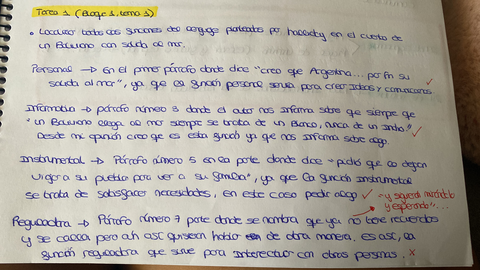 Tarea 1 (Bloque 1, tema 1)
• Localizar todas las funciones del lenguaje planteadas por halliday en el cuento de
un Boliviano con salida al mar.
Personal → En el primer párrafo donde dice "creo que Argentina... por fin su
salida al mar", ya que la función personal sirve para crear ideas y
Informativa → párrafo número 3 donde el autor nos informa sobre que siempre que
"un Boliviano llega al mar siempre se trata de un Blanco, nunca de un Indio". ✓
Desde mi opinión creo que es esta función ya que nos informa sobre algo.
Instrumental → Párrafo número 5 en la parte donde dice "pidió que lo dejen
a su pueblo para ver a su familia", ya que la función instrumental
se trata de satisfacer necesidades, en este caso pedir algo ✓
y esperando"...
Reguladora → Párrafo número 7 parte donde se nombra que ya no tiene recuerdos
y se pero ah así quisieran hablar de otra manera. es así, la
función reguladora que sirve para interactuar con otras personas. x